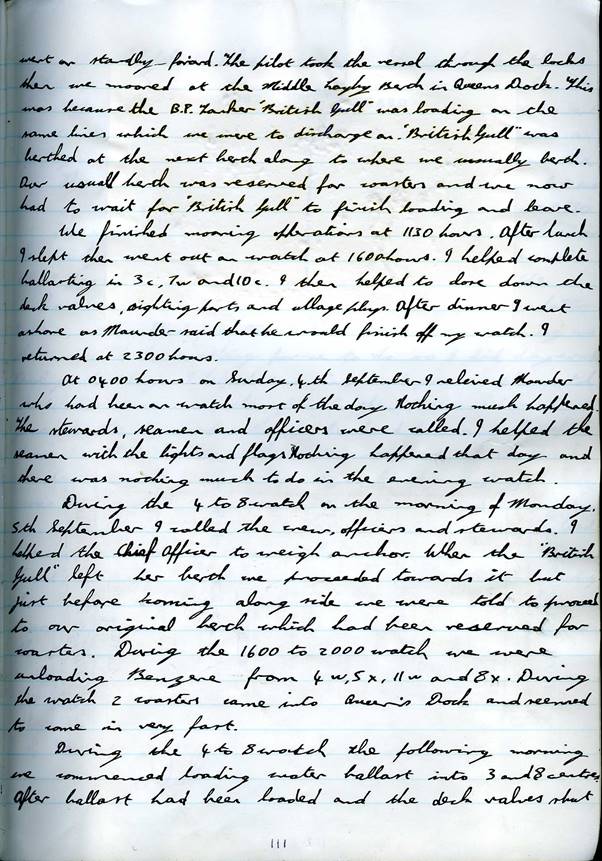 went on standby forard. The pilot took the vessel through the locks
then we moored at the Middle Layby Berth in Queens Dock. This
was because the B.P. Tanker "British Gull" was loading on the
same lines which we were to discharge on. "British Gull" was
berthed at the next berth along to where we usually berth.
Our usuall berth was reserved for coasters and we now
had to wait for "British Gull" to finish loading and leave.
We finished mooring operations at 1130 hours. After lunch
I slept then went out on watch at 1600 hours. I helped complete
ballasting in 3c, 7w and 10c. I then helped to close down the
deck valves, sighting ports and ullage plugs. After dinner I went
ashore as Maunder said that he would finish off my watch. I
returned at 2300 hours.
At 0400 hours on Sunday, 4th September I relieved Maunder
who had been on watch most of the day. Nothing much happened.
The stewards, seamen and officers were called. I helped the
seamen with the lights and flags. Nothing happened that day and
there was nothing much to do in the evening watch.
During the 4 to 8 watch on the morning of Monday,
5th September I called the crew, officers and stewards. I
helped the Chief Officer to weigh anchor. When the "British
Gull" left her berth we proceeded towards it but
just before coming along side we were told to proceed
to our original berth which had been reserved for
coasters. During the 1600 to 2000 watch we were
unloading Benzene from 4w, 5x, 11w and 8x. During
the watch 2 coasters came into Queen's Dock and seemed
to come in very fast.
During the 4 to 8 watch the following morning
we commenced loading water ballast into 3 and 8 centres.
After ballast had been loaded and the deck valves shut
111